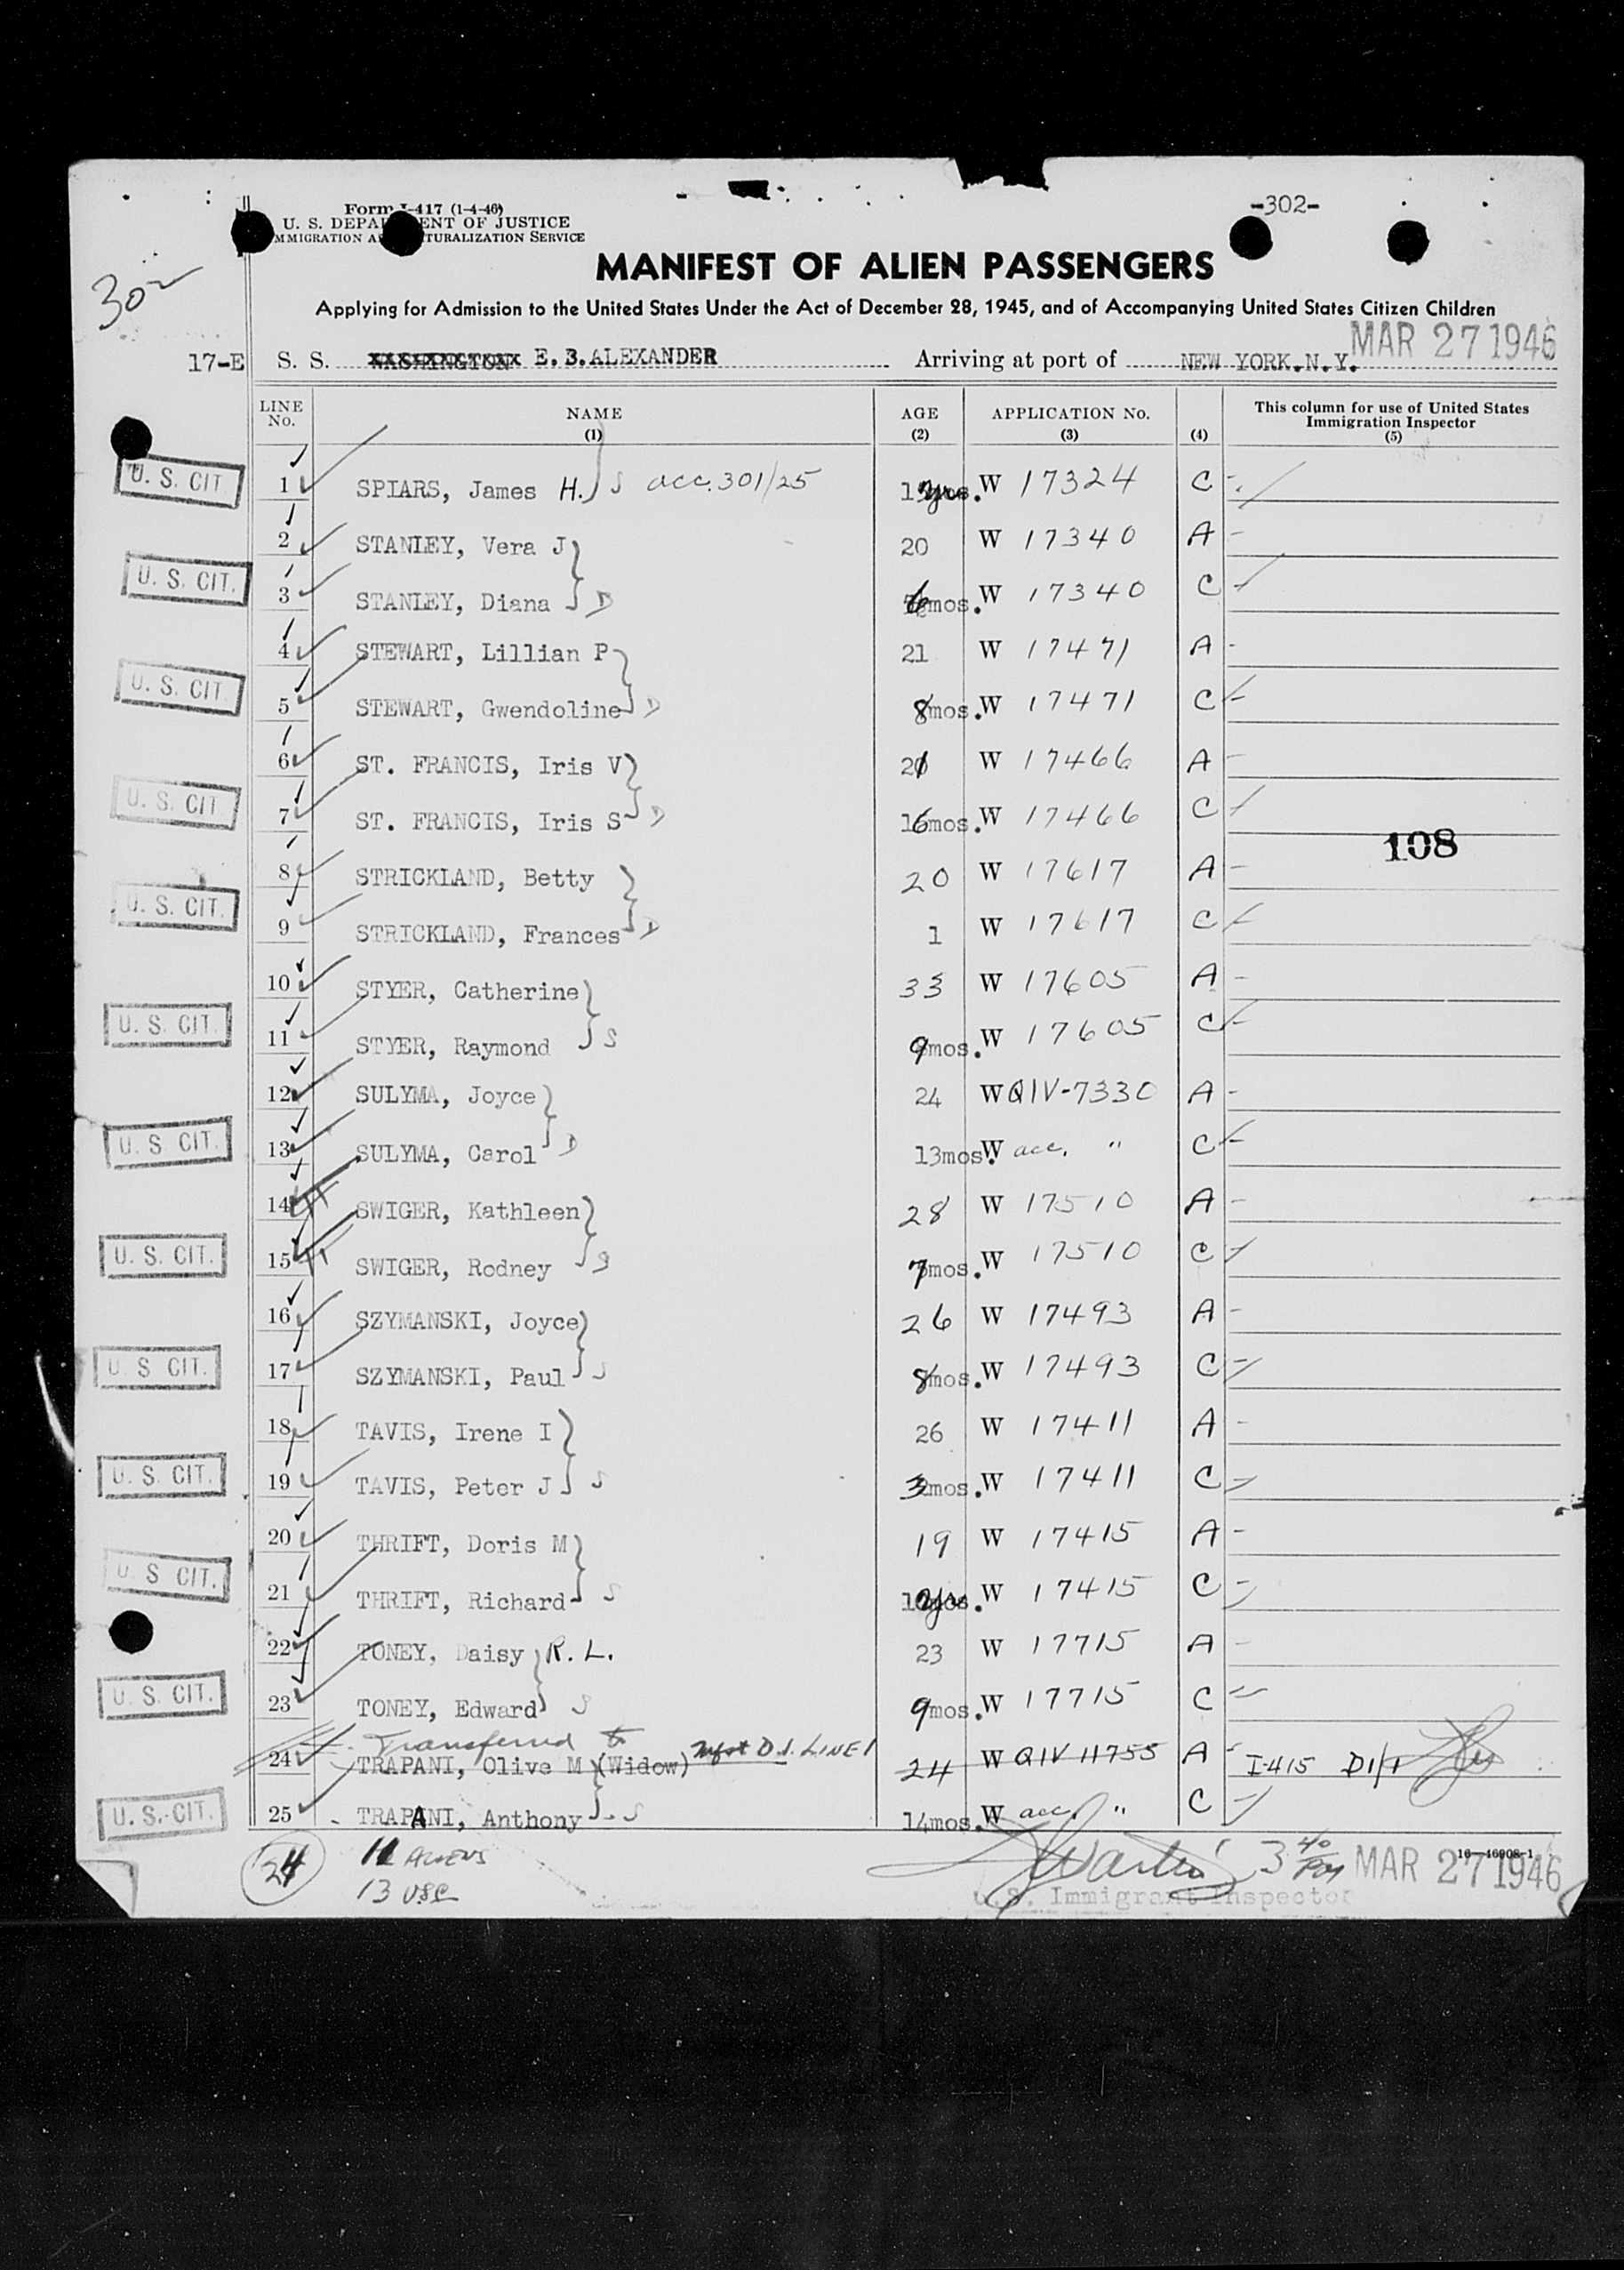 -302-
Form I-417 (1-4-46)
U. S. DEPA ENT OF JUSTICE
MMIGRATION A TURALIZATION SERVICE
302
MANIFEST OF ALIEN PASSENGERS
Applying for Admission to the United States Under the Act of December 28, 1945, and of Accompanying United States Citizen Children
MAR 27 1946
17-E S. S. WASHINGTON E. B. ALEXANDER Arriving at port of NEW YORK.N.Y.
LINE No. NAME (1) AGE (2) APPLICATION No. (3) (4) This column for use of United States Immigration Inspector (5)
U. S. CIT. 1 SPIARS, James H. S acc. 301/25 W 17324 C
2 STANLEY, Vera J 20 W 17340 A
U. S. CIT. 3 STANLEY, Diana D 6mos. W 17340 C
4 STEWART, Lillian P 21 W 17471 A
U. S. CIT. 5 STEWART, Gwendoline D 8mos. W 17471 C
6 ST. FRANCIS, Iris V 21 W 17466 A
U. S. CIT 7 ST. FRANCIS, Iris S D 16mos. W 17466 C
108
8 STRICKLAND, Betty 20 W 17617 A
U. S. CIT. 9 STRICKLAND, Frances D 1 W 17617 C
10 STYER, Catherine 33 W 17605 A
U. S. CIT. 11 STYER, Raymond S 9mos. W 17605 C
12 SULYMA, Joyce 24 W QIV-7330 A
U. S. CIT. 13 SULYMA, Carol D 13mos. W acc. " C
14 SWIGER, Kathleen 28 W 17510 A
U. S. CIT. 15 SWIGER, Rodney S 7mos. W 17510 C
16 SZYMANSKI, Joyce 26 W 17493 A
U. S. CIT. 17 SZYMANSKI, Paul S 8mos. W 17493 C
18 TAVIS, Irene I 26 W 17411 A
U. S. CIT. 19 TAVIS, Peter J S 3mos. W 17411 C
20 THRIFT, Doris M 19 W 17415 A
U. S. CIT. 21 THRIFT, Richard S W 17415 C
22 TONEY, Daisy R. L. 23 W 17715 A
U. S. CIT. 23 TONEY, Edward S 9mos. W 17715 C
Transferred to
24 TRAPANI, Olive M (Widow) Mfst D.I. LINE 1 24 W QIV 11755 A I-415 D1/1
U. S. CIT. 25 TRAPANI, Anthony S 14mos. W acc. " C
24 11 ALIENS 3 40 PM 16-46908-1 MAR 27 1946
13 USC U. S. Immigrant Inspector